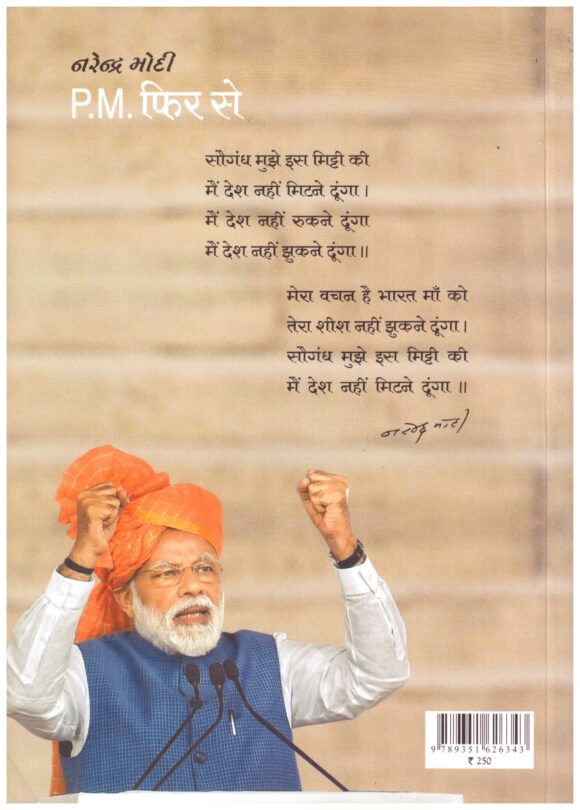 નરેન્દ્ર મોદી
P.M. फिर से
सौगंध मुझे इस मिट्टी की
मैं देश नहीं मिटने दूंगा।
मैं देश नहीं रुकने दूंगा
मैं देश नहीं झुकने दूंगा॥
मेरा वचन है भारत माँ को
तेरा शीश नहीं झुकने दूंगा।
सौगंध मुझे इस मिट्टी की
मैं देश नहीं मिटने दूंगा ॥
નરેન્દ્ર મોદી
9 789351 626343
₹ 250